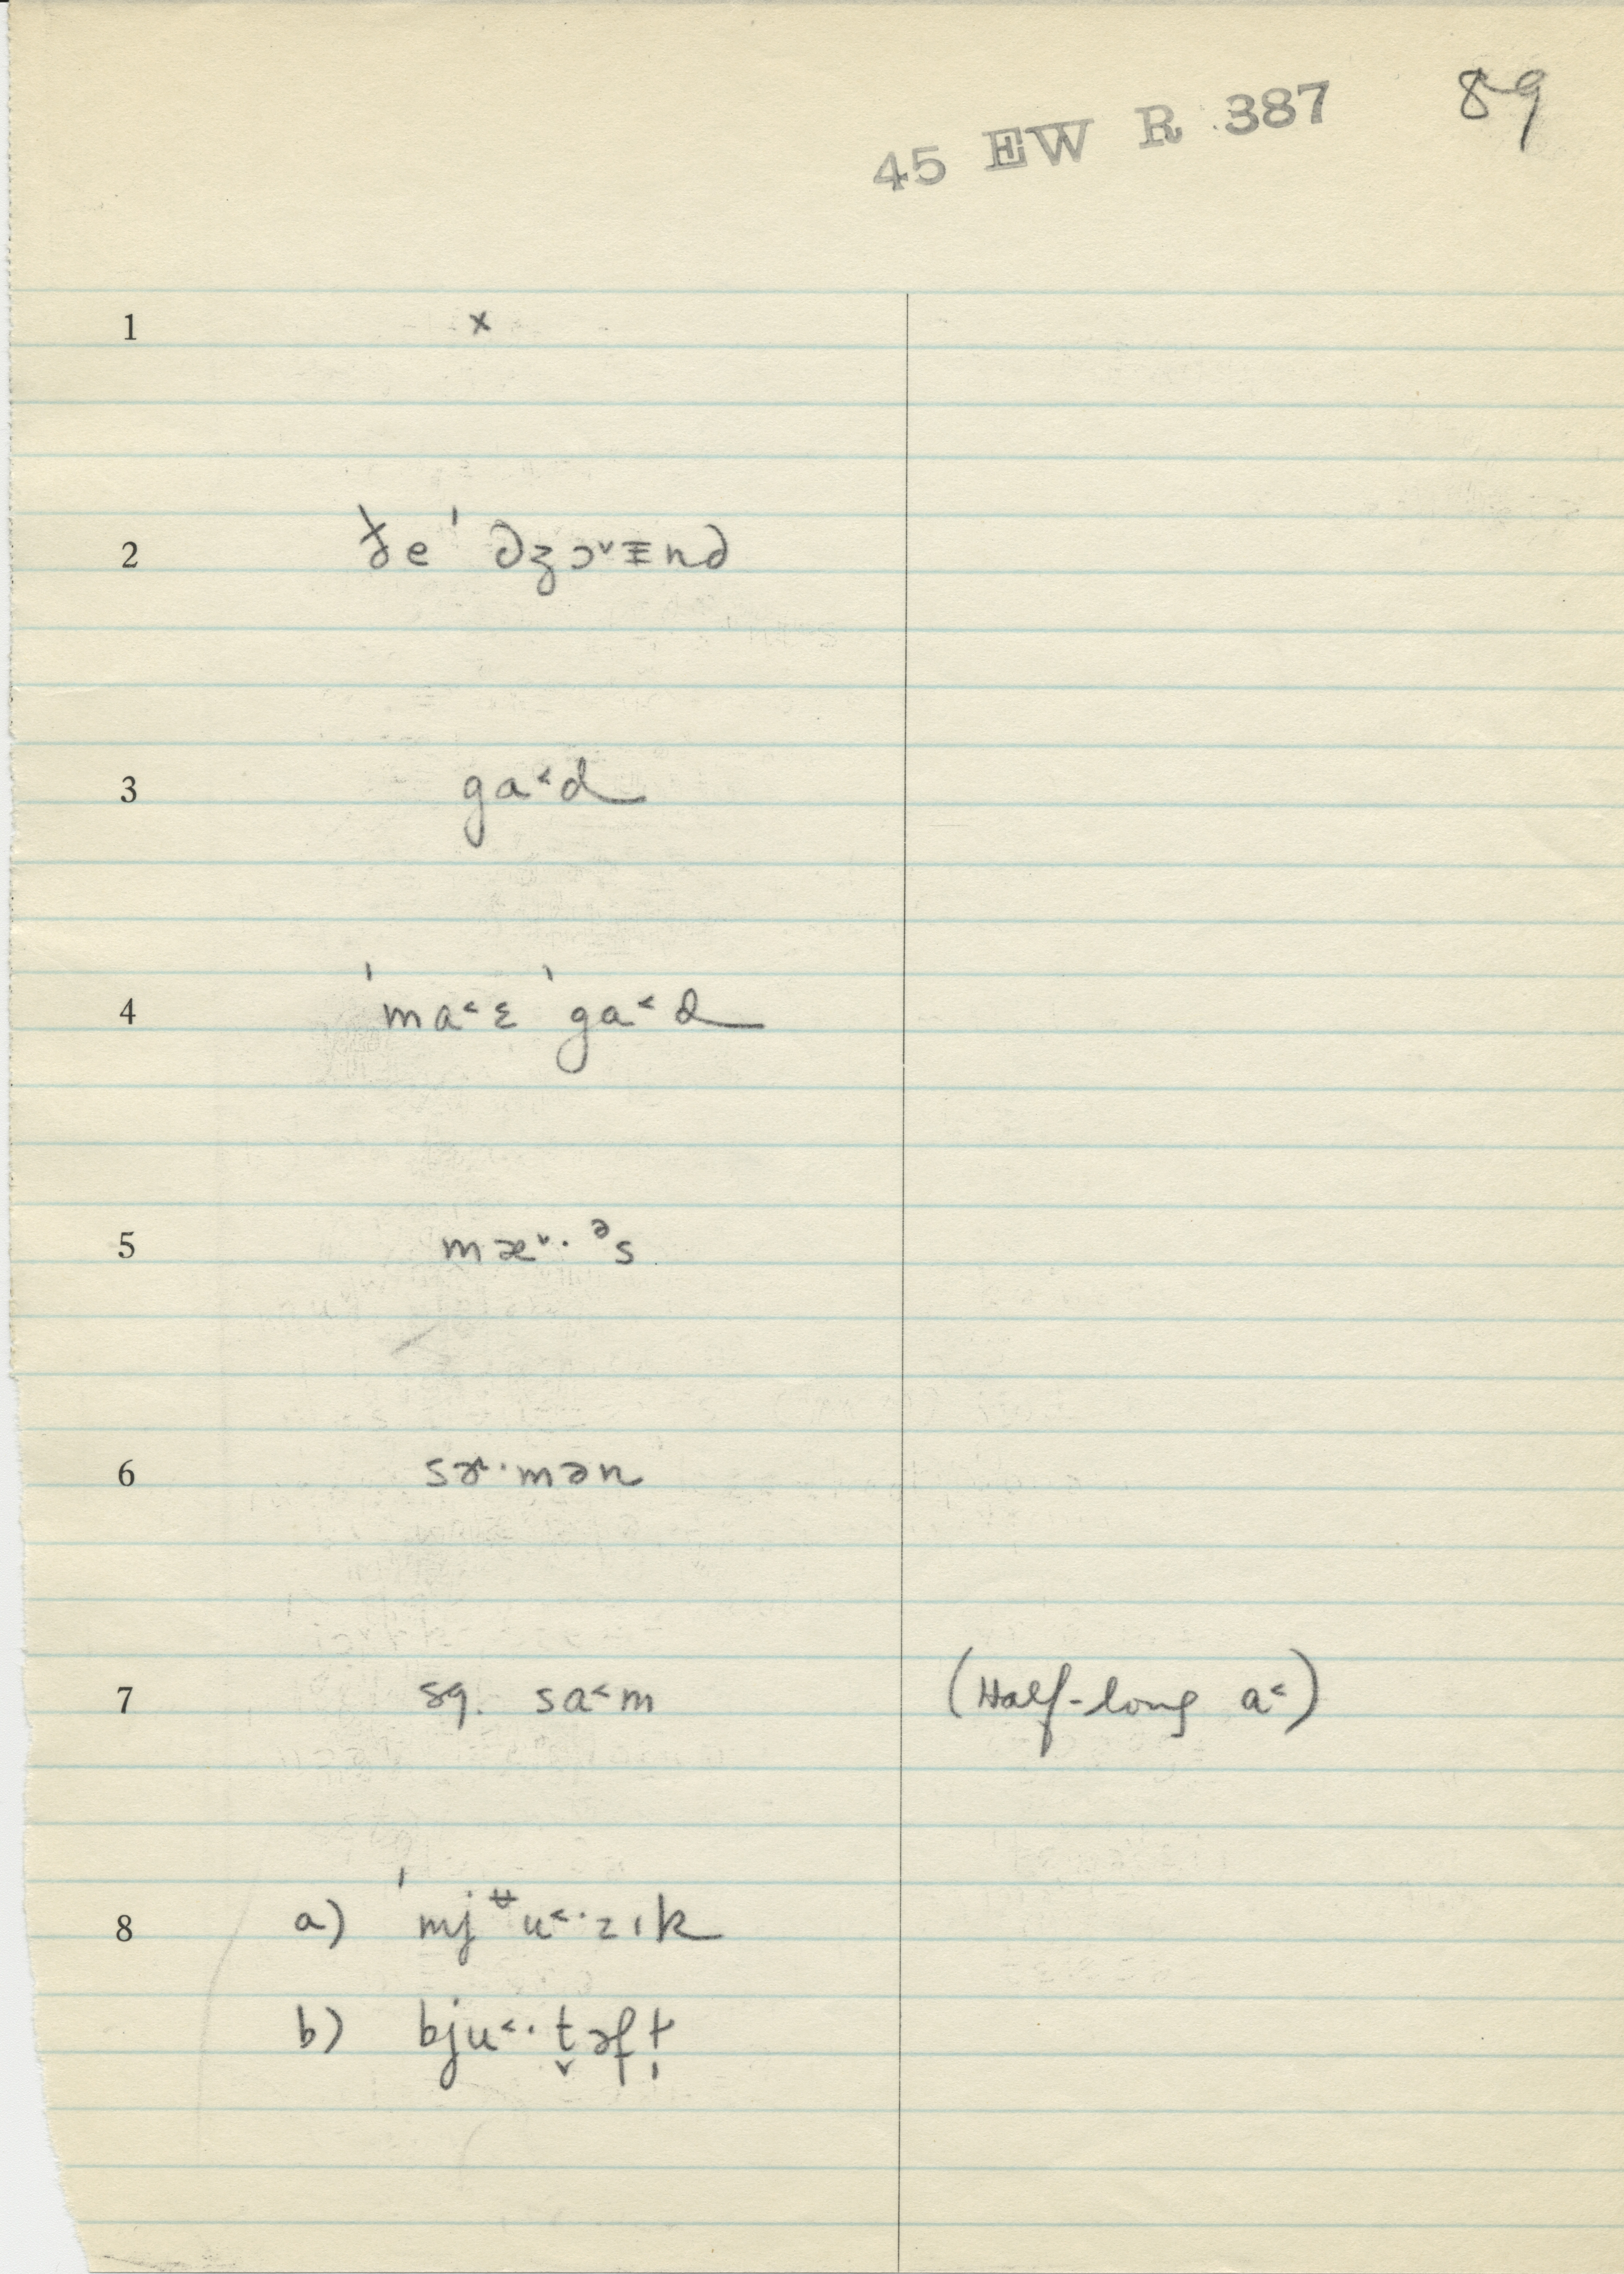 45 EW R 387 89
1 x
2 ðe ˈəʒɔ˅ɪnə
3 ga˂d
4 ˈma˂ɛ ˈga˂d
5 mæ˅· ᵊs
6 sɚ·mən
7 sg. sa˂m (Half-long a˂)
8 a) ˈmjᵿu˂·zɪk
b) bju˂·t̬əfɫ̩